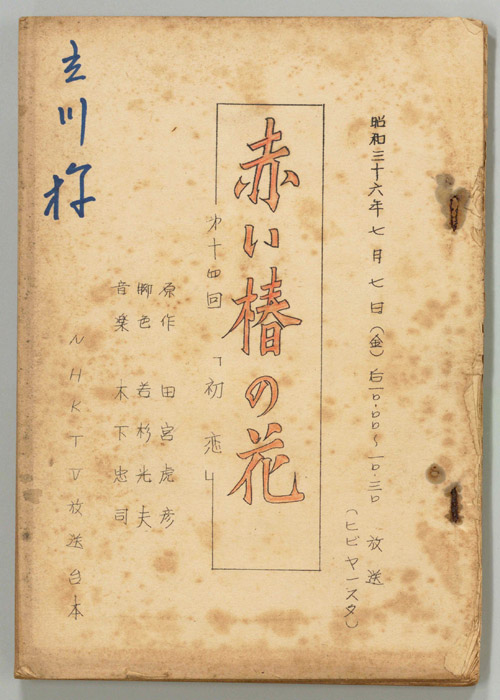 昭和三十六年七月七日(金)后一〇.〇〇〜一〇.三〇 放送
(ヒビヤースタ)
赤い椿の花
第十四回「初恋」
原作 田宮虎彦
脚色 若杉光夫
音楽 木下忠司
NHKTV放送台本
立川